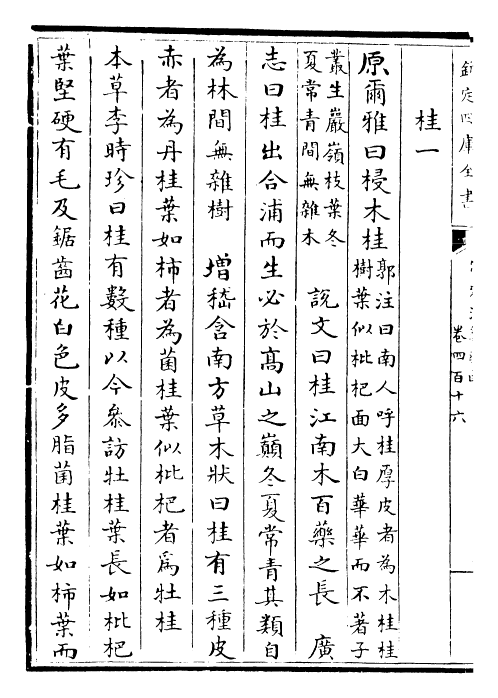 欽定四庫全書
卷四百十六
桂一
原爾雅曰梫木桂郭注曰南人呼桂厚皮者為木桂桂樹葉似枇杷而大白華華而不著子
叢生巖嶺枝葉冬夏常青間無雜木 說文曰桂江南木百藥之長 廣
志曰桂出合浦而生必於高山之巔冬夏常青其類自
為林間無雜樹 增嵇含南方草木狀曰桂有三種皮
赤者為丹桂葉如柿者為菌桂葉似枇杷者為牡桂
本草李時珍曰桂有數種以今叅訪牡桂葉長如枇杷
葉堅硬有毛及鋸齒花白色皮多脂菌桂葉如柿葉而